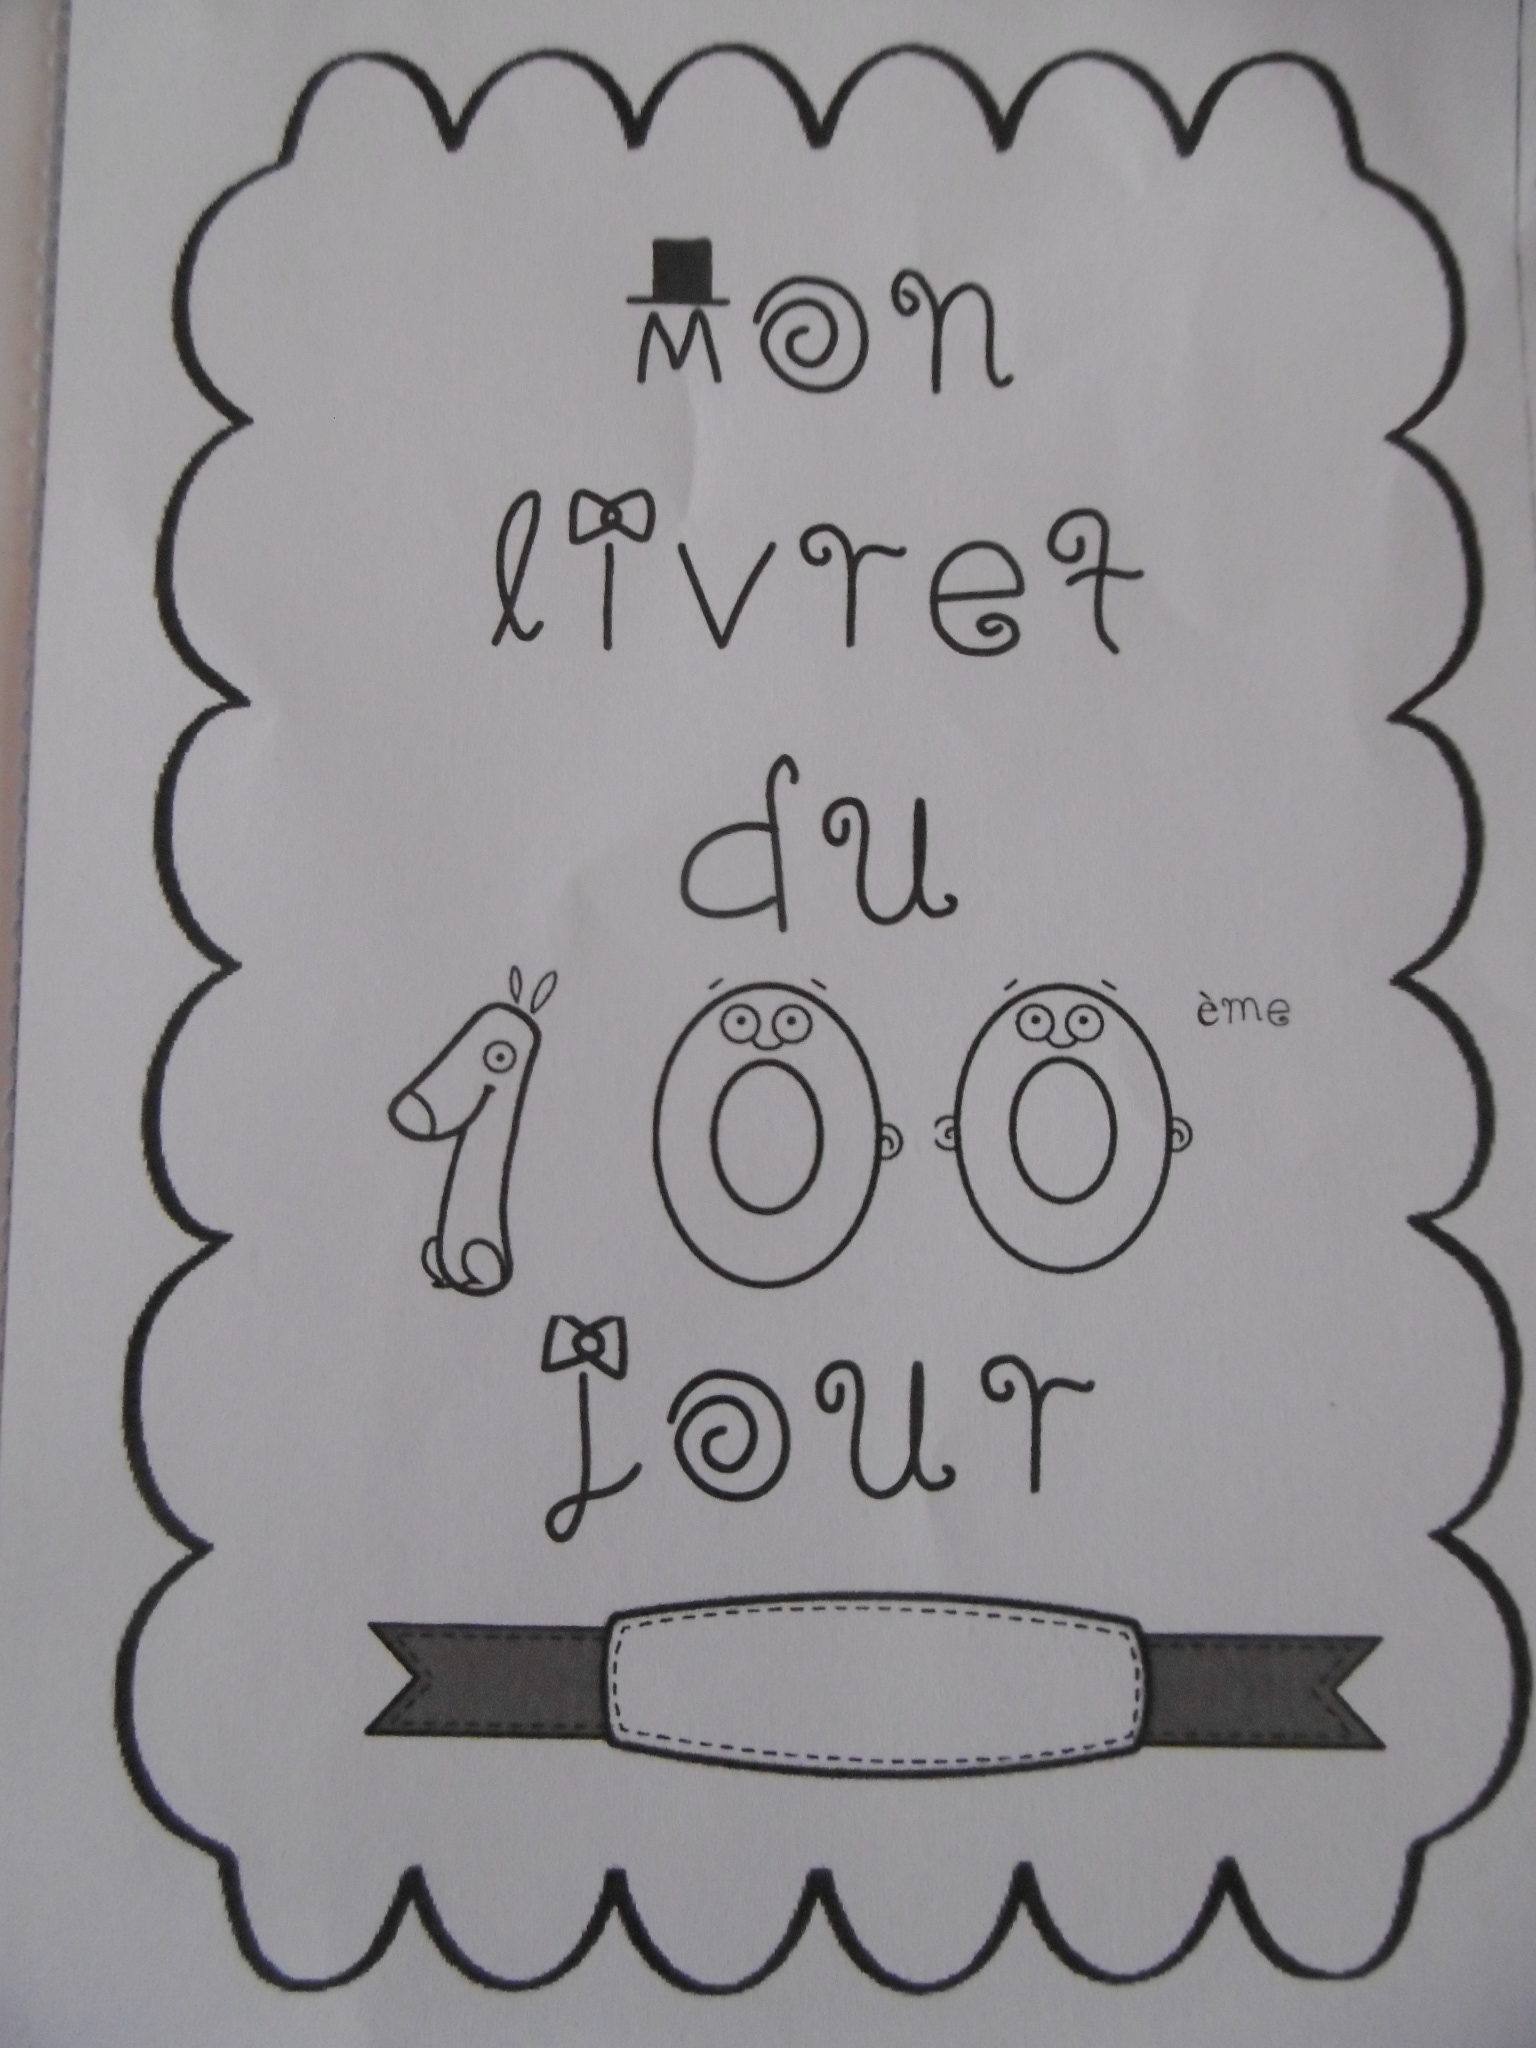 Mon
livret
du
100ème
jour